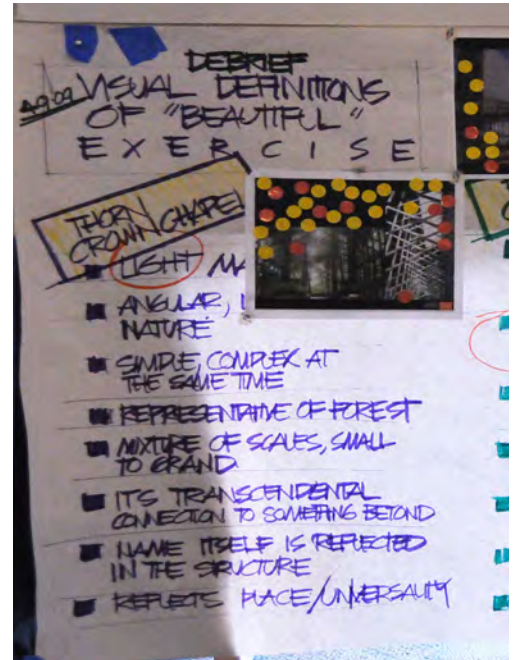 DEBRIEF
4.9.09 VISUAL DEFINITIONS
OF "BEAUTIFUL"
EXERCISE
THORN
CROWN CHAPEL
LIGHT
ANGULAR,
NATURE
SIMPLE, COMPLEX AT
THE SAME TIME
REPRESENTATIVE OF FOREST
MIXTURE OF SCALES, SMALL
TO GRAND
ITS TRANSCENDENTAL
CONNECTION TO SOMETHING BEYOND
NAME ITSELF IS REFLECTED
IN THE STRUCTURE
REFLECTS PLACE/UNIVERSALITY